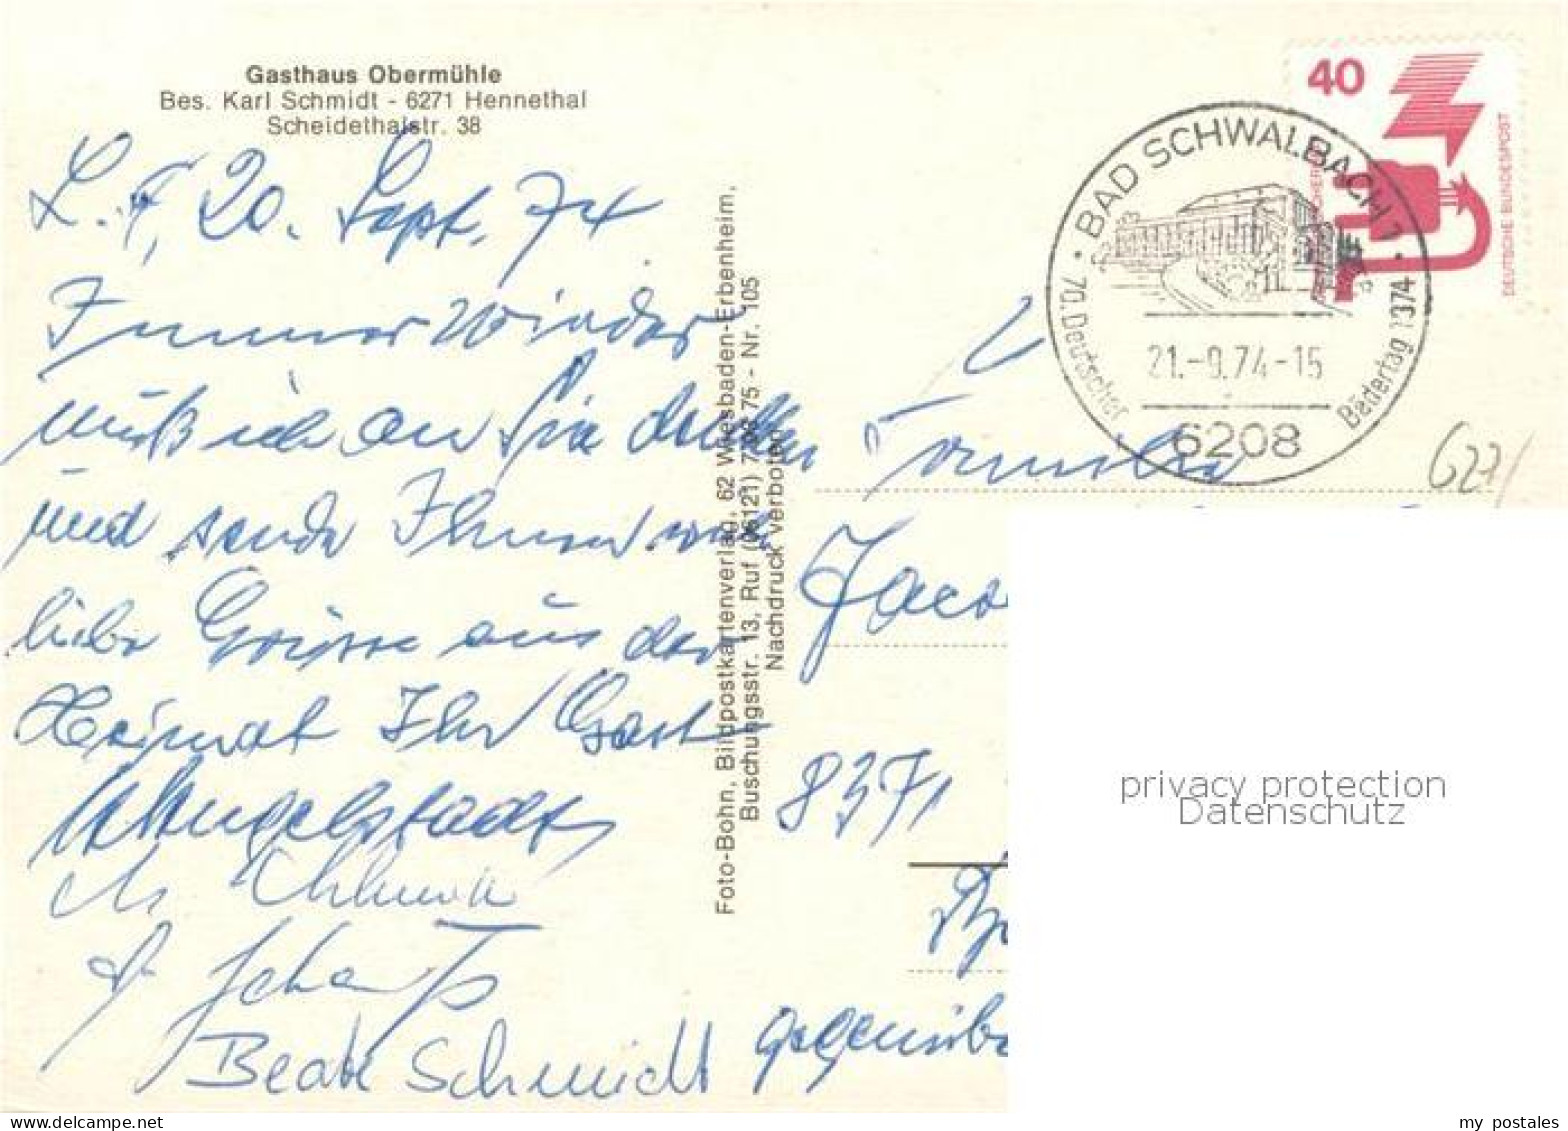 Gasthaus Obermühle
Bes. Karl Schmidt - 6271 Hennethal
Scheidethalstr. 38
L. F, 20. Sept. 74
Immer wieder
muß ich an Sie denken
und sende Ihnen
liebe Grüsse aus der
Heimat Ihr Gast
Beate Schmidt
Foto-Bohn, Bildpostkartenverlag, 62 Wiesbaden-Erbenheim,
Buschungsstr. 13, Ruf (06121) 7 75 - Nr. 105
Nachdruck verboten
40
DEUTSCHE BUNDESPOST
BAD SCHWALBACH 1
70. Deutscher Bädertag 1974
21.-9.74-15
6208
6271
Familie
8371
gegenübe
privacy protection
Datenschutz
my postales